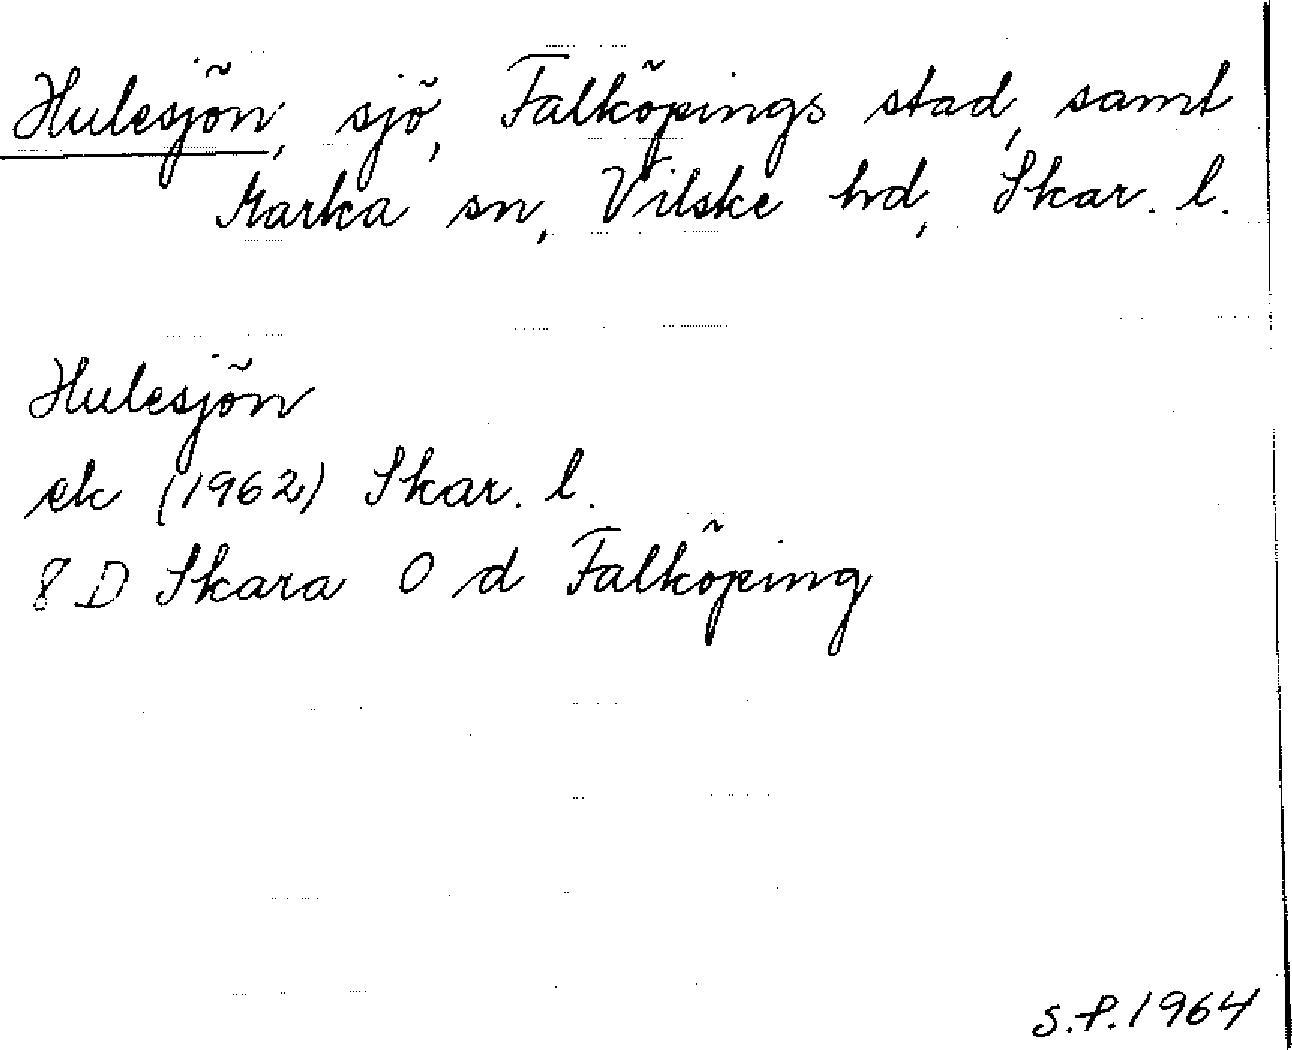 Hulesjön, sjö, Falköpings stad, samt
Marka sn, Vilske hd, Skar. l.
Hulesjön
ek (1962) Skar. l.
8 D Skara 0 d Falköping
S.P. 1964